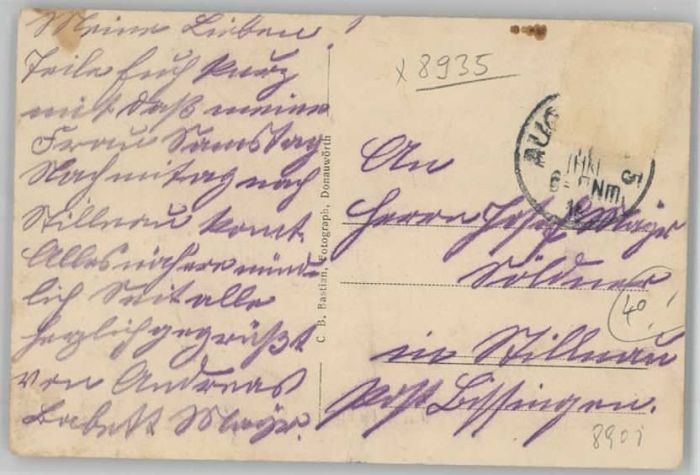 Meine Lieben
Teile Euch kurz
mit daß meine
Frau Samstag
Nachmitag nach
Stillnau komt.
Alles nähere münd-
lich Seit alle
herzlich gegrüßt
von Andreas
Babett Mayr.
C. B. Bastian, Fotograph, Donauwörth
x 8935
AUG
5
6-7 NM.
An
Herrn Josef Mayr
Söldner
40
in Stillnau
Post Bissingen.
8901